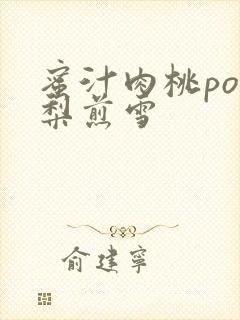 蜜汁肉桃po
梨煎雪
俞建寧